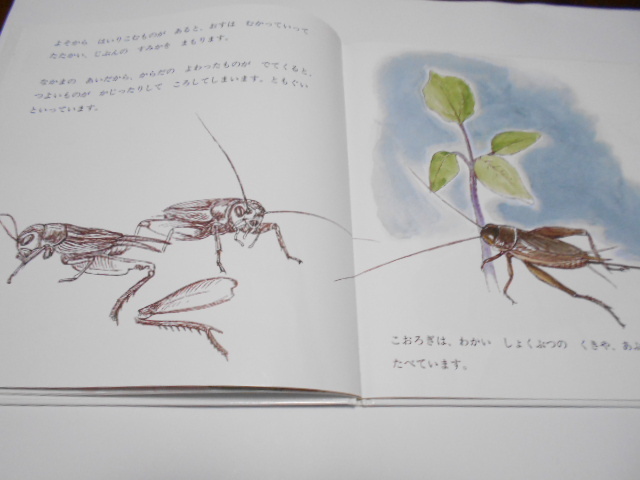 よそから　はいりこむものが　あると、おすは　むかっていって
たたかい、じぶんの　すみかを　まもります。
なかまの　あいだから、からだの　よわったものが　でてくると、
つよいものが　かじったりして　ころしてしまいます。ともぐい
といっています。
こおろぎは、わかい　しょくぶつの　くきや、あぶ
たべています。